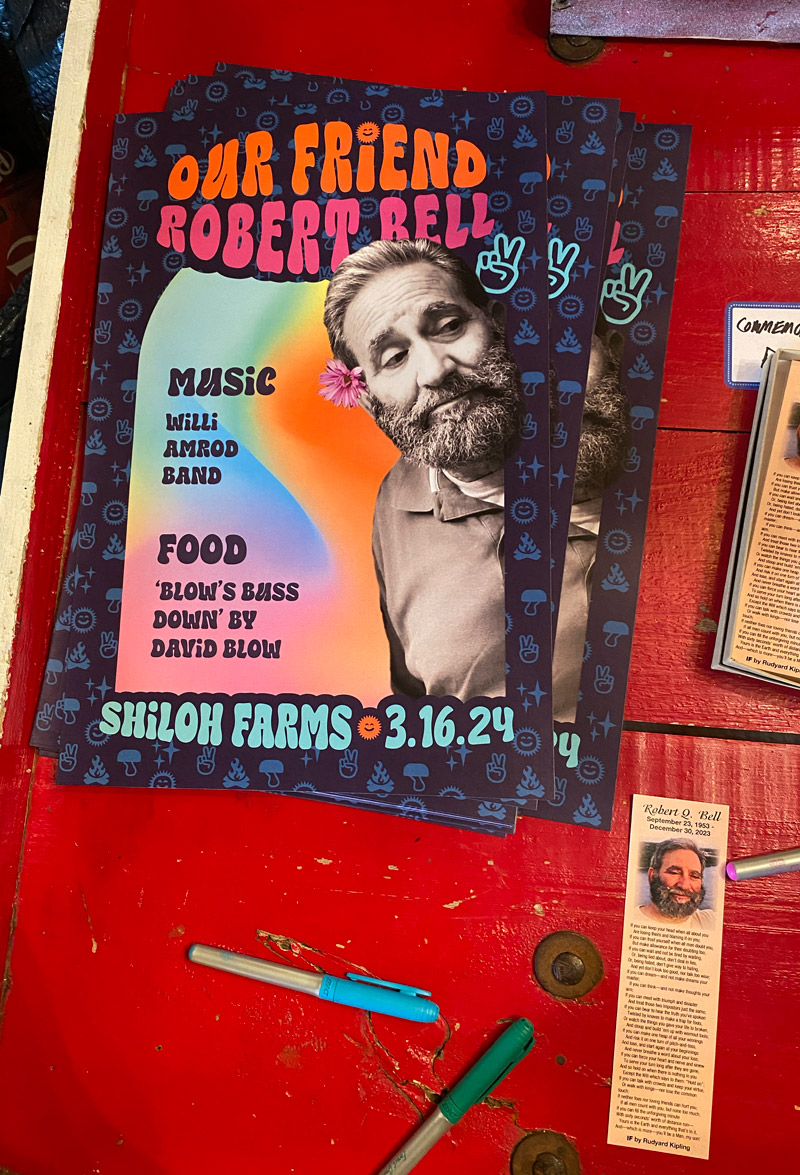 OUR FRIEND
ROBERT BELL
MUSIC
WILLI
AMROD
BAND
FOOD
'BLOW'S BUSS
DOWN' BY
DAVID BLOW
SHILOH FARMS 3.16.24
Robert Q. Bell
September 23, 1953 -
December 30, 2023
If you can keep your head when all about you
Are losing theirs and blaming it on you;
If you can trust yourself when all men doubt you,
But make allowance for their doubting too;
If you can wait and not be tired by waiting,
Or, being lied about, don't deal in lies,
Or, being hated, don't give way to hating,
And yet don't look too good, nor talk too wise;
If you can dream—and not make dreams your
master;
If you can think—and not make thoughts your
aim;
If you can meet with triumph and disaster
And treat those two impostors just the same;
If you can bear to hear the truth you've spoken
Twisted by knaves to make a trap for fools,
Or watch the things you gave your life to broken,
And stoop and build 'em up with wornout tools;
If you can make one heap of all your winnings
And risk it on one turn of pitch-and-toss,
And lose, and start again at your beginnings
And never breathe a word about your loss;
If you can force your heart and nerve and sinew
To serve your turn long after they are gone,
And so hold on when there is nothing in you
Except the Will which says to them: "Hold on";
If you can talk with crowds and keep your virtue,
Or walk with kings—nor lose the common
touch;
If neither foes nor loving friends can hurt you;
If all men count with you, but none too much;
If you can fill the unforgiving minute
With sixty seconds' worth of distance run—
Yours is the Earth and everything that's in it,
And—which is more—you'll be a Man, my son!
IF by Rudyard Kipling
IF by Rudyard Kip